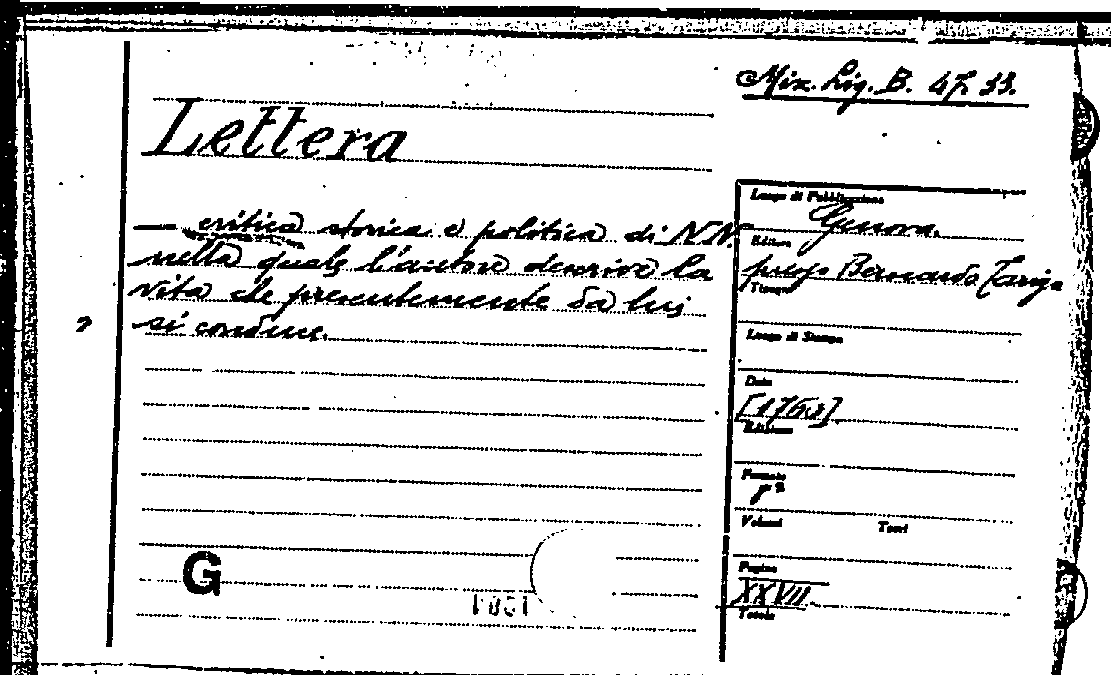 Miz. Lig. B. 47. 33.
Lettera
— critica storica e politica di N.N.
nella quale l'autore descrive la
vita che presentemente da lui
si conduce.
Luogo di Pubblicazione
Genova.
Editore
presso Bernardo Tarigo
Luogo di Stampa
Data
Edizione
Formato
8º
Volumi Tomi
Pagine
XXVII
Tavole
G